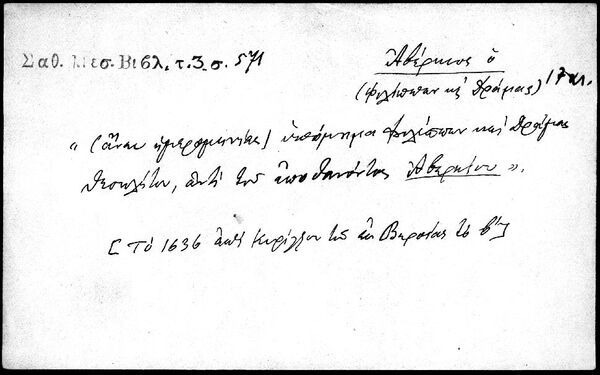 Σαθ. Μεσ. Βιβλ. τ. 3 σ. 571
Ἀβέρκιος ὁ
(Φιλίππων κ̀ Δράμας) 17 αι.
" (ἄνευ ἡμερομηνίας) ὑπόμνημα Φιλίππων κ̀ Δράμας
Θεοκλήτου, ἀντὶ τοῦ ἀποθανόντος Ἀβερκίου ".
[Τὸ 1636 ἐπὶ Κυρίλλου τοῦ ἐκ Βεροίας τὸ β΄]